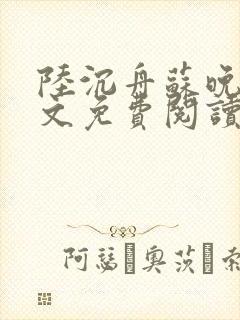 陸沉舟蘇晚
文免費閱讀
阿瑟·奧茨·索